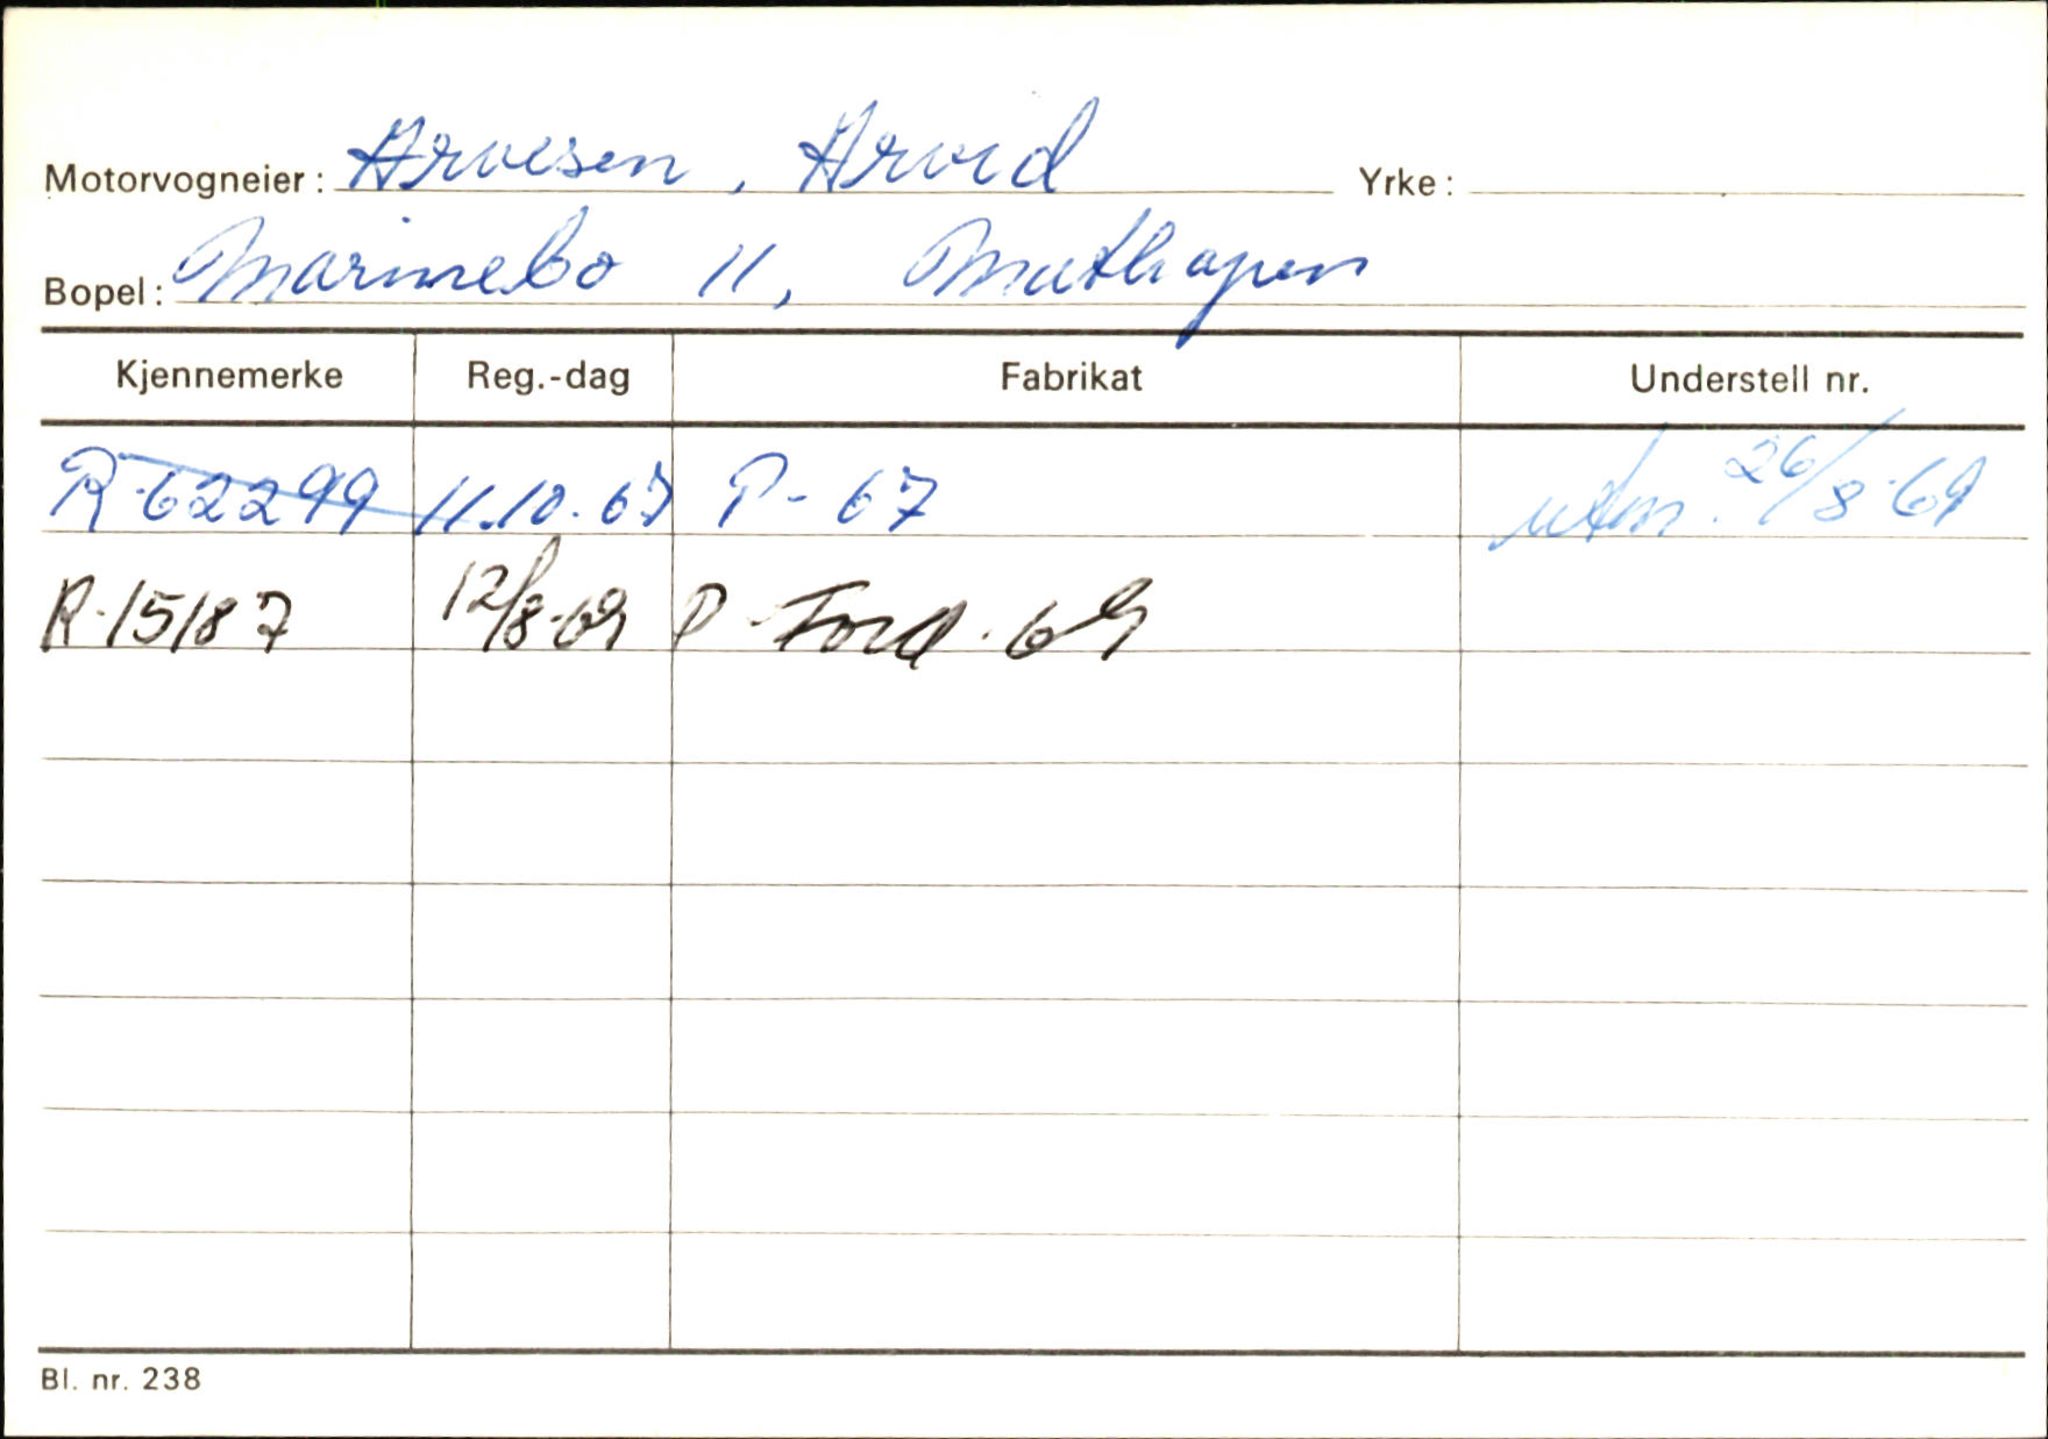 Motorvogneier: Arvesen, Arvid Yrke:
Bopel: Marinebo 11, Mathopen
Kjennemerke Reg.-dag Fabrikat Understell nr.
R-62299 11.10.67 P- 67 utm. 26/8-69
R-15187 12/8-69 P-Ford-69
Bl. nr. 238